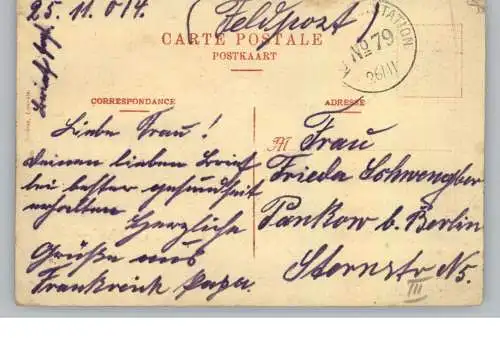 25. 11. 014. (Feldpost)
CARTE POSTALE
POSTKAART
STATION
No 79
26/11
CORRESPONDANCE
ADRESSE
Liebe Frau!
Deinen lieben Brief
bei bester gesundheit
erhalten Herzliche
Grüße aus
Frankreich Papa.
M Frau
Frieda Schwengber
Pankow b. Berlin
Sternstr N5.
III